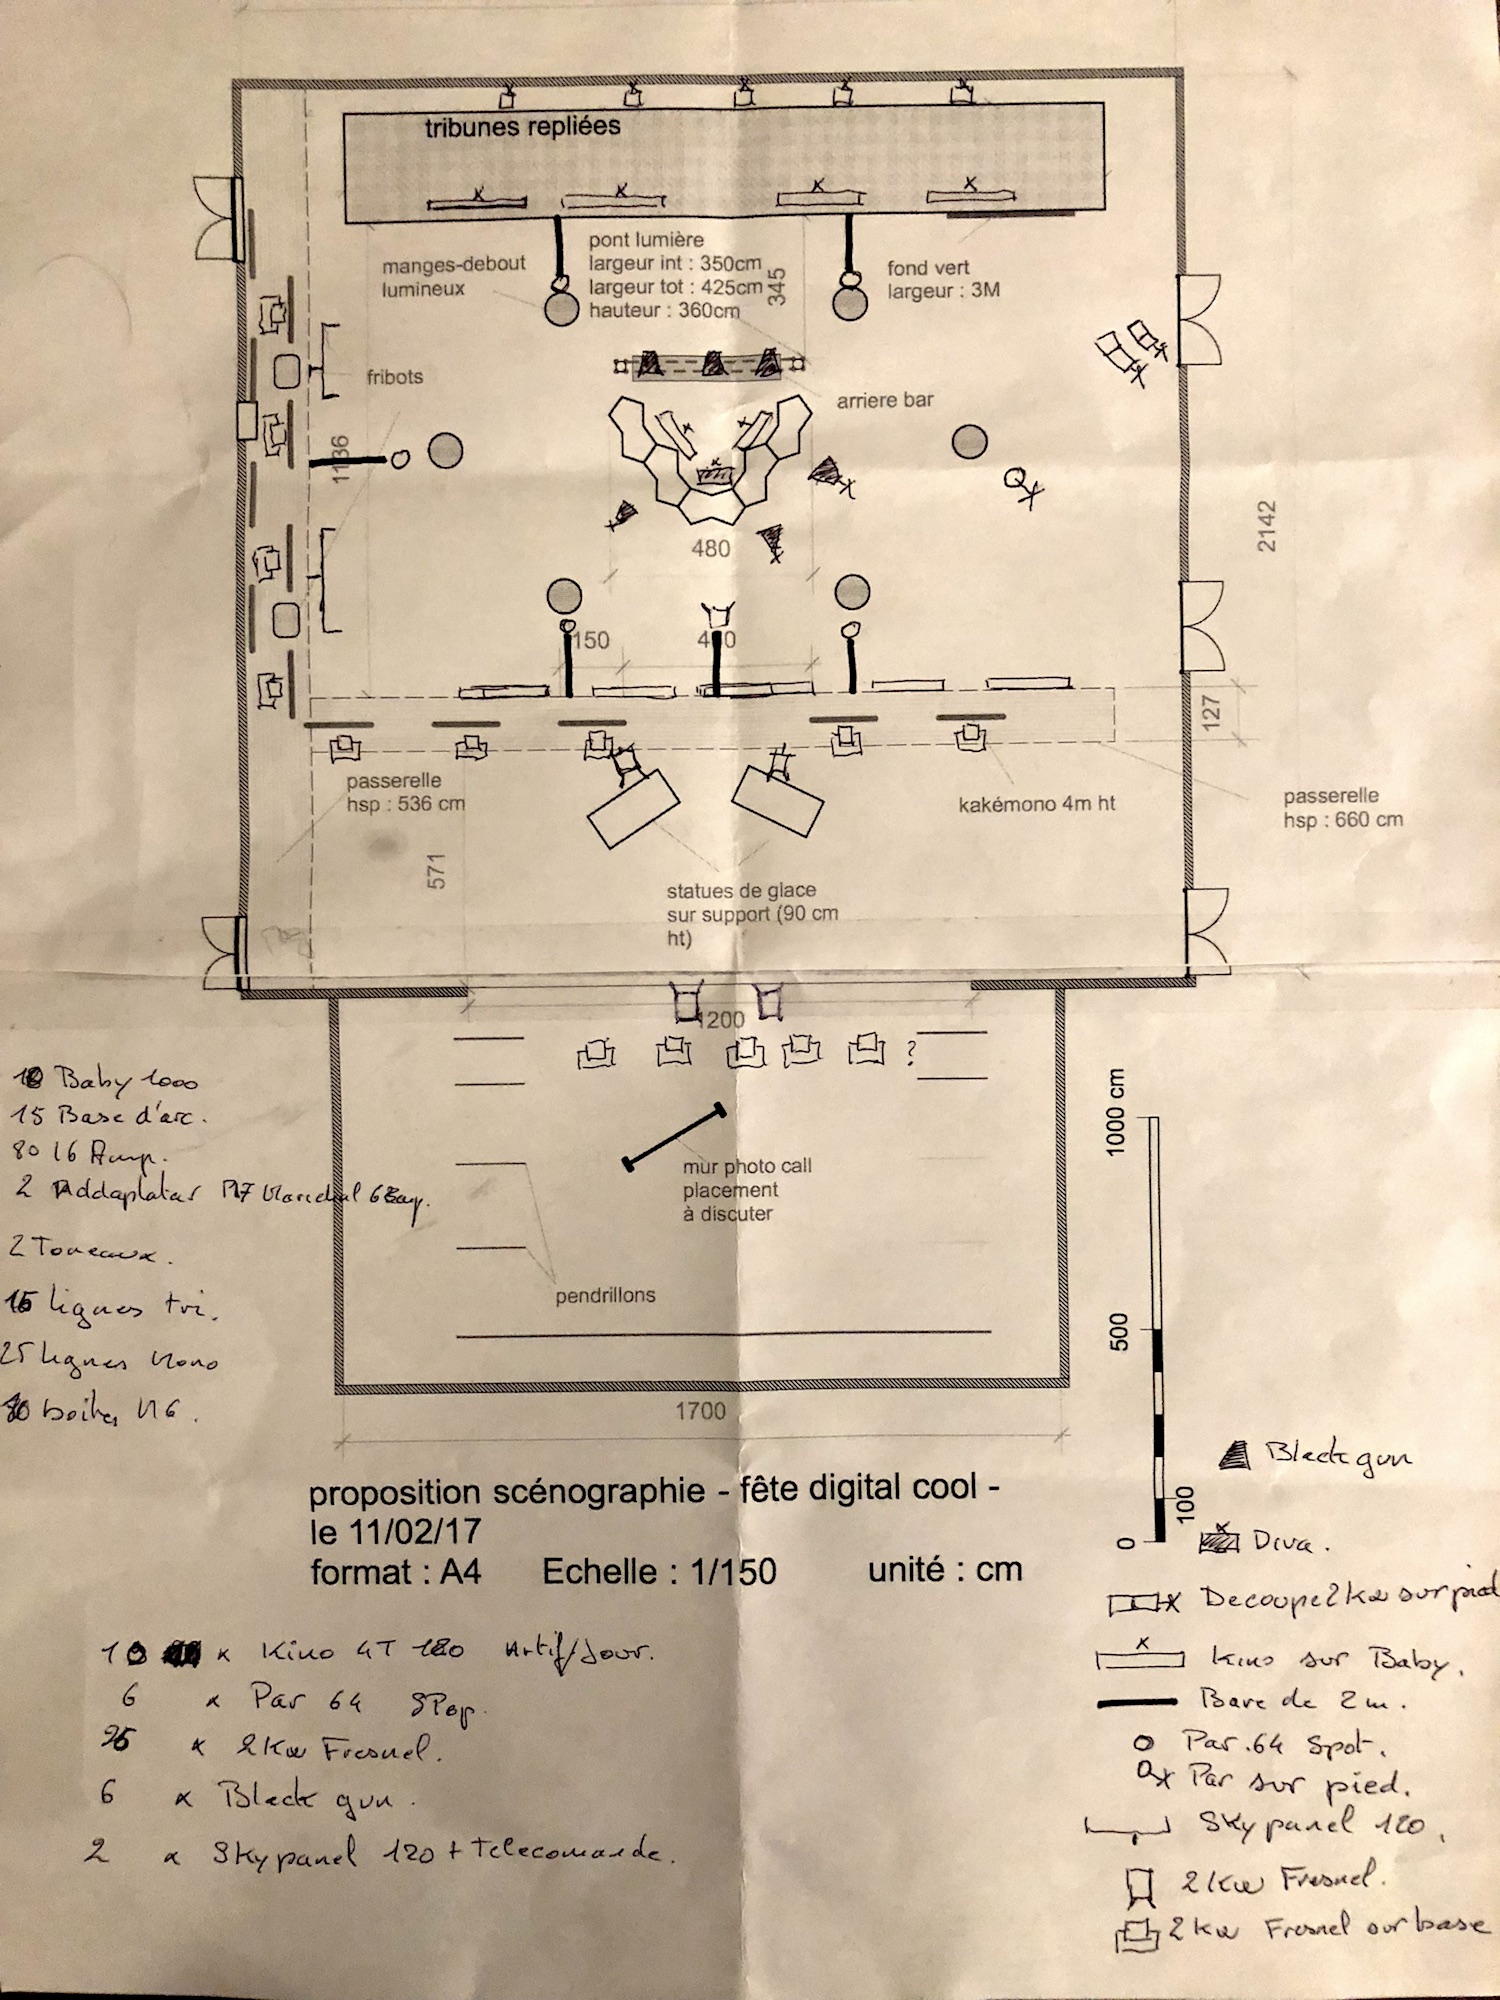 tribunes repliées
manges-debout
lumineux
pont lumière
largeur int : 350cm
largeur tot : 425cm
hauteur : 360cm
345
fond vert
largeur : 3M
fribots
arriere bar
1186
480
2142
150
480
127
passerelle
hsp : 536 cm
kakémono 4m ht
passerelle
hsp : 660 cm
571
statues de glace
sur support (90 cm
ht)
1200
?
mur photo call
placement
à discuter
pendrillons
1700
1000 cm
500
100
0
Baby 1000
15 Base d'arc.
80 16 Amp.
2 Addaplatas P17 Marechal 63
2 Toneaux.
15 lignes tri.
25 lignes Mono
boites M6.
proposition scénographie - fête digital cool -
le 11/02/17
format : A4 Echelle : 1/150 unité : cm
10 x Kino 4T 120 Artif/Jour.
6 x Par 64
x 2Kw Fresnel.
6 x Black gun.
2 x Skypanel 120 + Telecomande.
Black gun
Diva.
Decoupe 2kw sur pied
Kino sur Baby.
Bare de 2m.
Par.64 Spot.
Par sur pied.
Sky panel 120.
2Kw Fresnel.
2kw Fresnel sur base